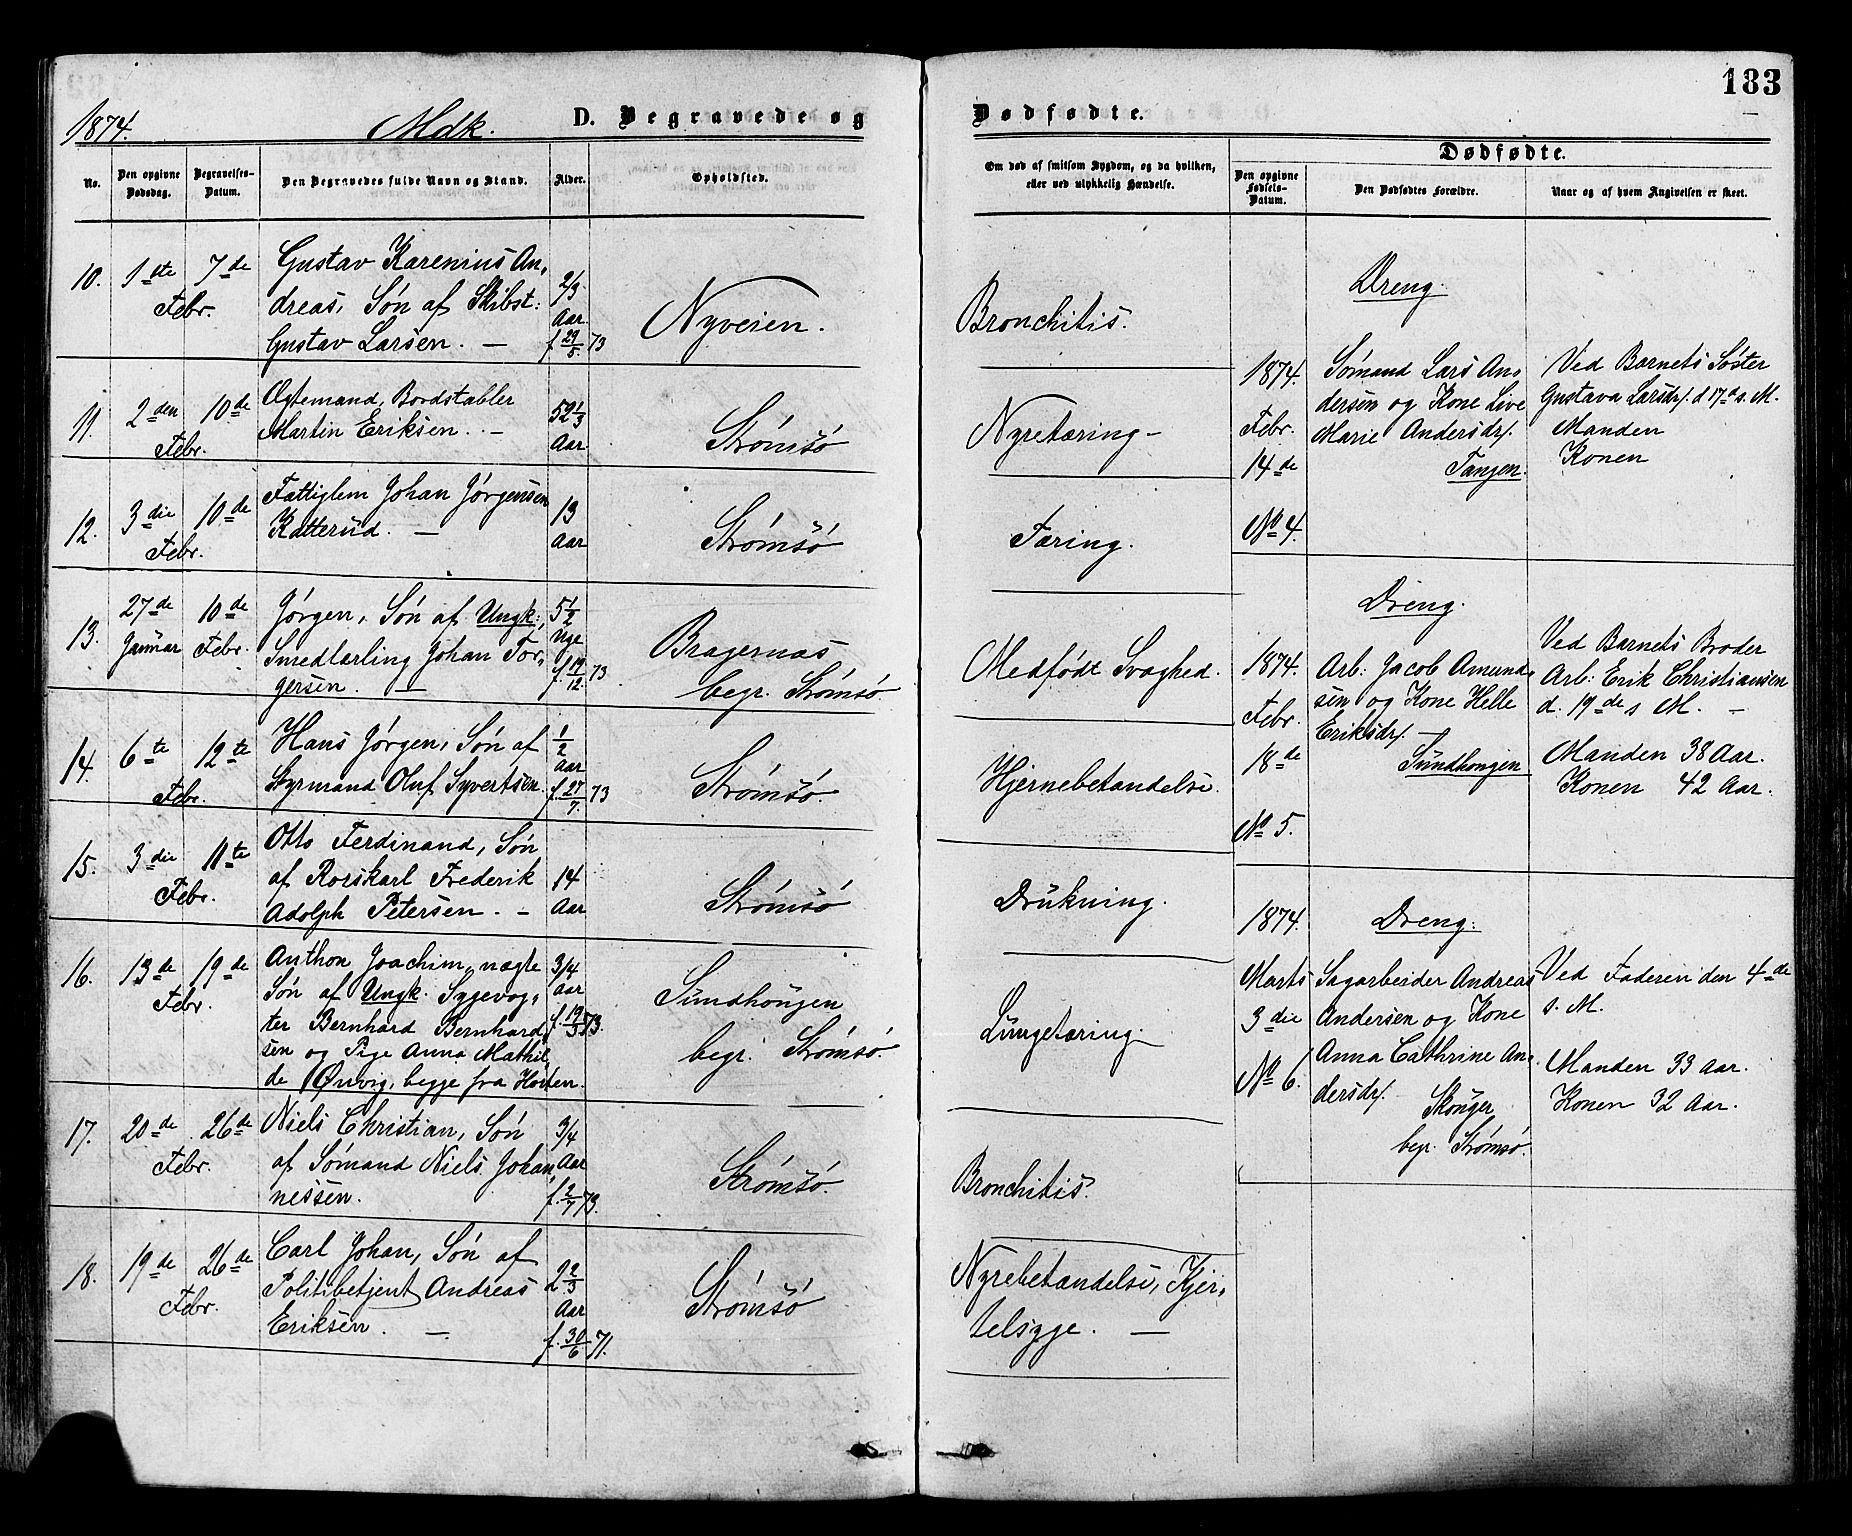 183
1874.
Mdk.
D. Begravede og
Dødfødte.
No.
Den opgivne Dødsdag.
Begravelses-Datum.
Den Begravedes fulde Navn og Stand.
Alder.
Opholdsted.
Om død af smitsom Sygdom, og da hvilken,
eller ved ulykkelig Hændelse.
Dødfødte.
Den opgivne Fødsels-Datum.
Den Dødfødtes Forældre.
Naar og af hvem Angivelsen er skeet.
10. 1ste Febr. 7de
Gustav Karenius An-
dreas, Søn af Skibst:
Gustav Larsen. —
2/3 Aar f. 29/5 73
Nyveien.
Bronchitis.
11. 2den Febr. 10de
Ægtemand, Bordstabler
Martin Eriksen. —
52 1/3 Aar
Strømsø
Nyretæring —
12. 3die Febr. 10de
Fattiglem Johan Jørgensen
Katterud. —
13 Aar
Strømsø
Tæring.
13. 27de Januar 10de Febr.
Jørgen, Søn af Ungk:,
Smedlærling Johan Tor-
gersen. —
5 1/2 Uge f. 19/12 73
Bragernæs,
begr. Strømsø.
Medfødt Svaghed.
14. 6te Febr. 12te
Hans Jørgen, Søn af
Styrmand Oluf Syvertsen.
1/2 Aar f. 27/7 73
Strømsø.
Hjernebetændelse.
15. 3die Febr. 11te
Otto Ferdinand, Søn
af Rorskarl Frederik
Adolph Petersen. —
14 Aar
Strømsø
Drukning.
16. 13de Febr. 19de
Anthon Joachim, uægte
Søn af Ungk. Sygevog-
ter Bernhard Bernhard-
sen og Pige Anna Mathil-
de Ørvig, begge fra Horten.
3/4 Aar f. 19/5 73.
Sundhougen
begr. Strømsø.
Lungetæring —
17. 20de Febr. 26de
Niels Christian, Søn
af Sømand Niels Johan-
nessen.
3/4 Aar f. 2/7 73.
Strømsø.
Bronchitis.
18. 19de Febr. 26de
Carl Johan, Søn af
Politibetjent Andreas
Eriksen. —
2 2/3 Aar f. 30/6 71.
Strømsø
Nyrebetændelse, Kjer-
telsyge. —
Dreng.
1874. Febr. 14de No 4.
Sømand Lars An-
dersen og Kone Live
Marie Andersdr.
Tangen.
Ved Barnets Søster
Gustava Larsdr. d. 17de s. M.
Manden
Konen
Dreng.
1874. Febr. 18de No 5.
Arb: Jacob Amund-
sen og Kone Helle
Eriksdr. —
Sundhougen
Ved Barnets Broder
Arb: Erik Christiansen
d. 19de s M. —
Manden 38 Aar.
Konen 42 Aar.
Dreng.
1874. Marts 3die No 6.
Sagarbeider Andreas
Andersen og Kone
Anna Cathrine An-
dersdr.
Skoger
begr. Strømsø.
Ved Faderen den 4de
s. M.
Manden 33 Aar.
Konen 32 Aar.